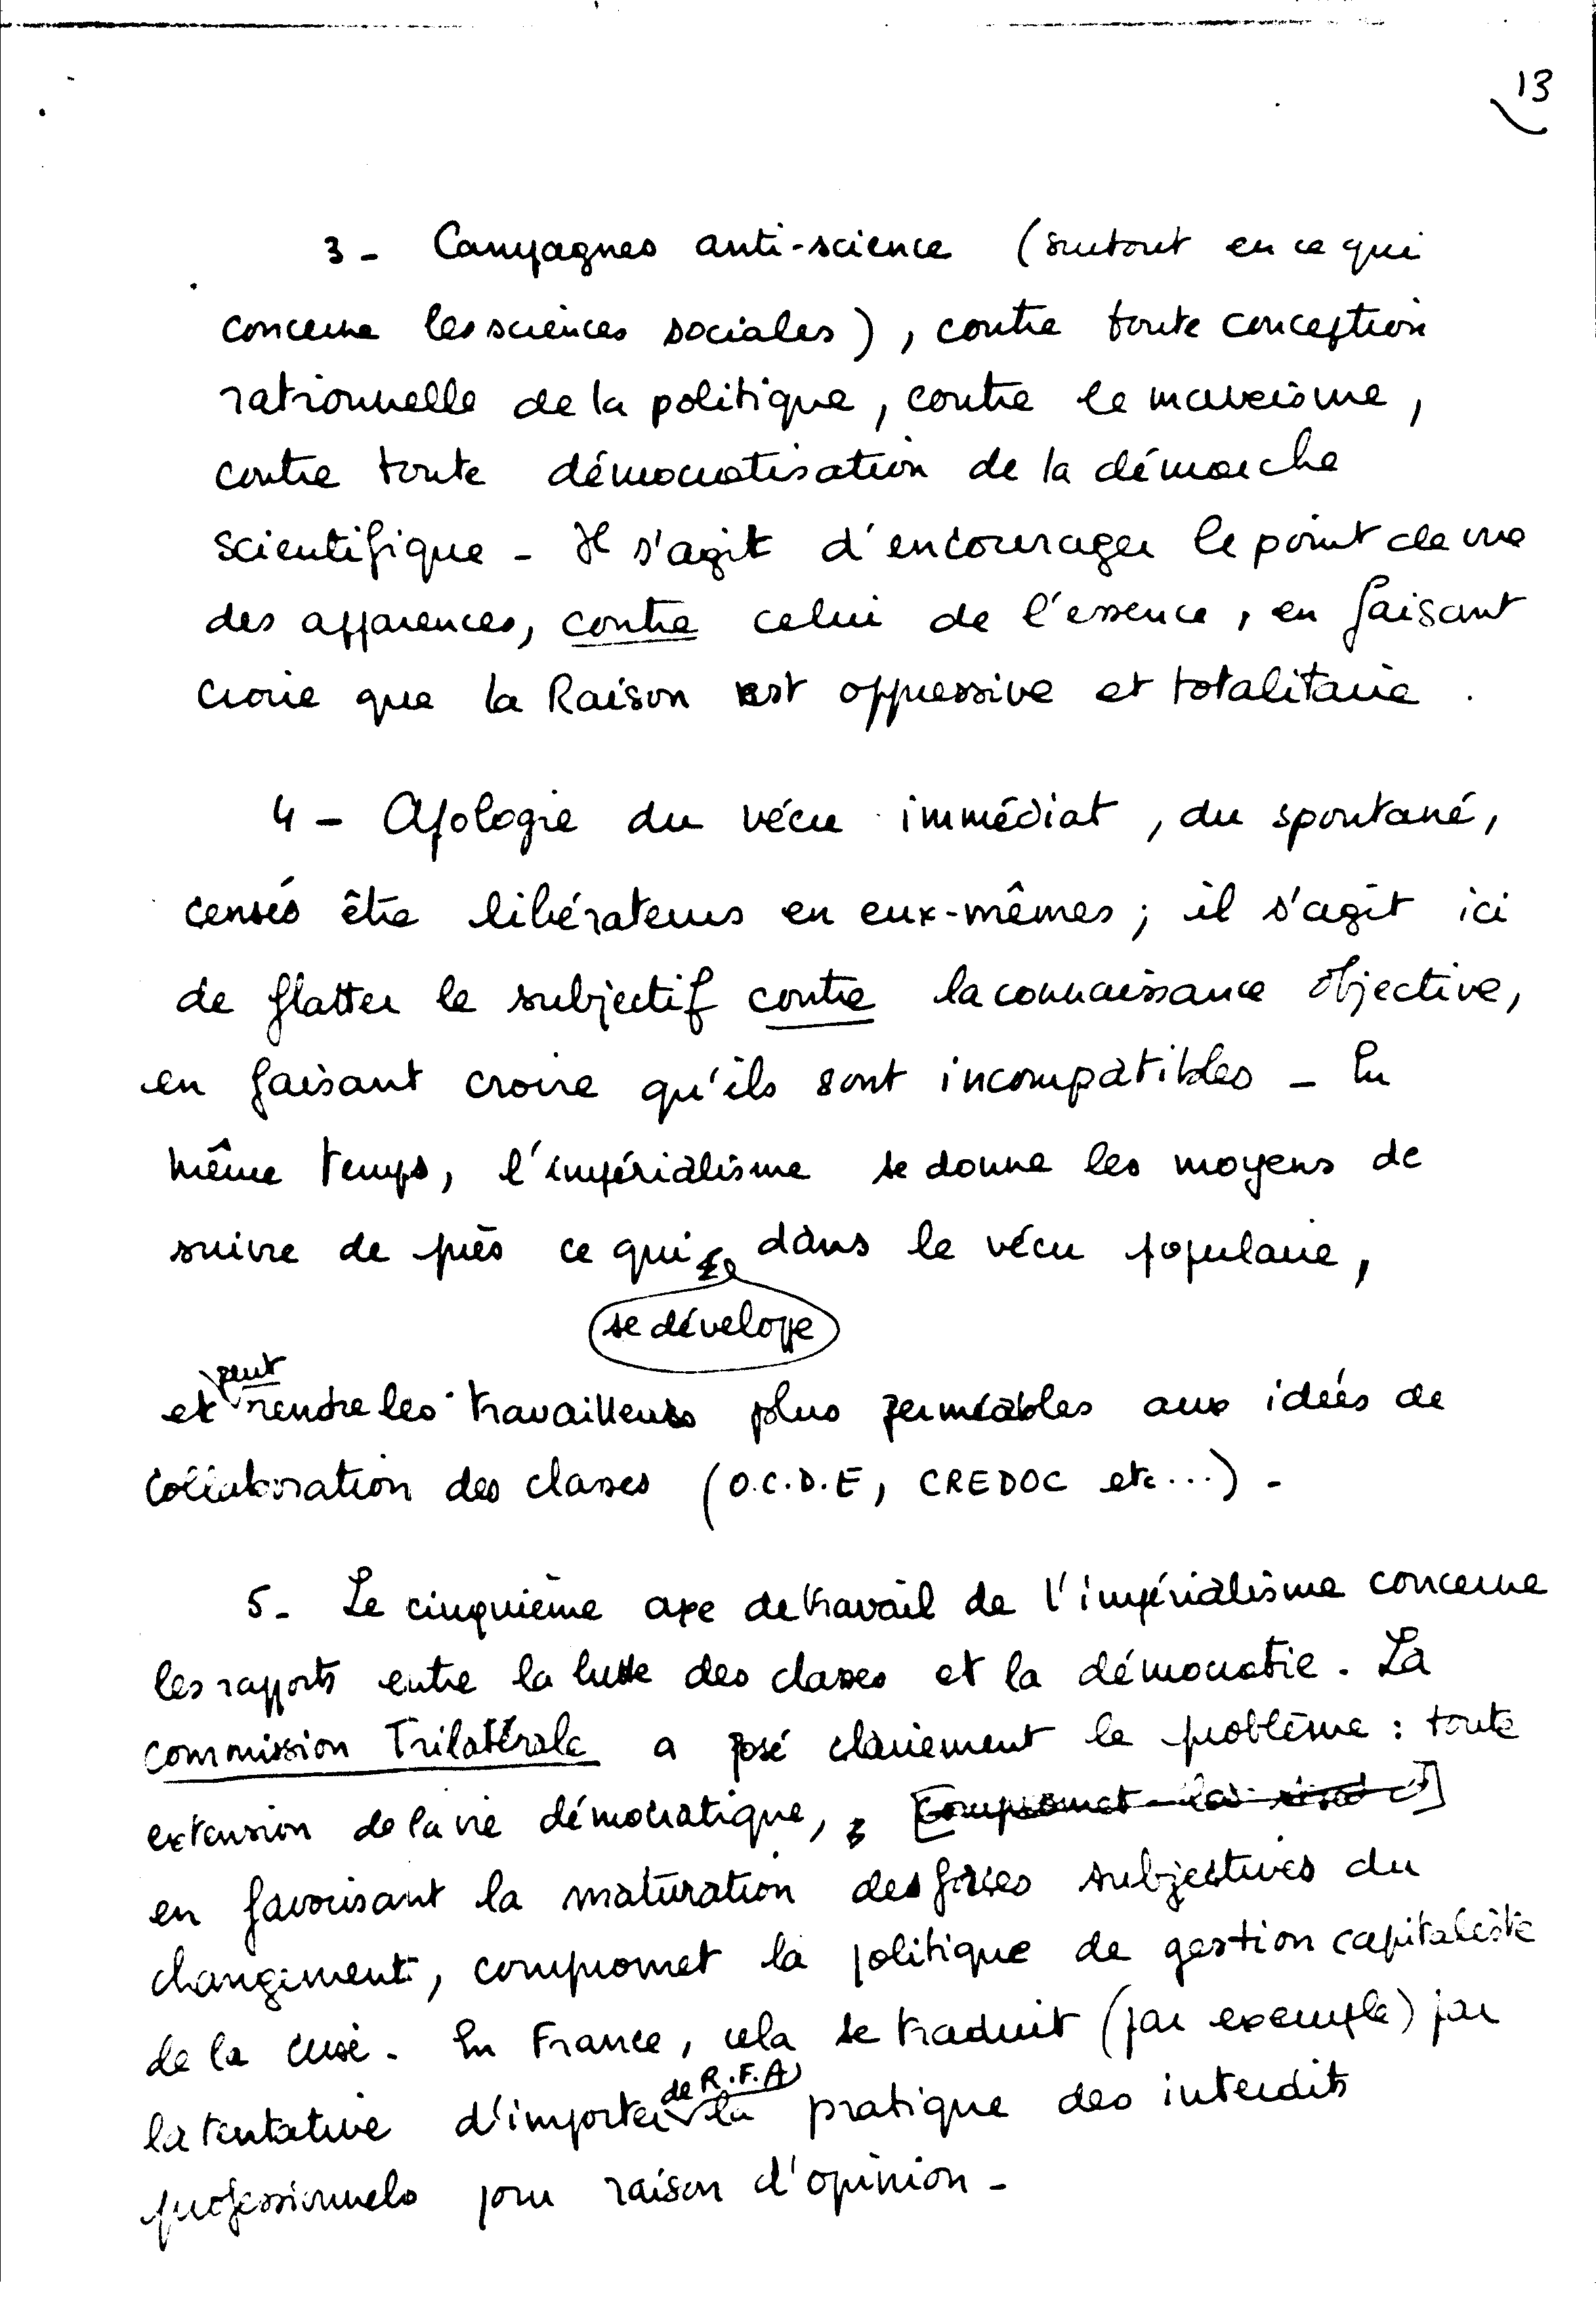 13
3 - Campagnes anti-science (surtout en ce qui
concerne les sciences sociales), contre toute conception
rationnelle de la politique, contre le marxisme,
contre toute démocratisation de la démarche
scientifique - Il s'agit d'encourager le point de vue
des apparences, contre celui de l'essence, en faisant
croire que la Raison est oppressive et totalitaire.
4 - Apologie du vécu immédiat, du spontané,
censés être libérateurs en eux-mêmes; il s'agit ici
de flatter le subjectif contre la connaissance objective,
en faisant croire qu'ils sont incompatibles - En
même temps, l'impérialisme se donne les moyens de
suivre de près ce qui dans le vécu populaire,
se développe
peut
et rendre les travailleurs plus perméables aux idées de
collaboration des classes (O.C.D.E, CREDOC etc...) -
5 - Le cinquième axe de travail de l'impérialisme concerne
les rapports entre la lutte des classes et la démocratie. La
commission Trilatérale a posé clairement le problème : toute
extension de la vie démocratique, [compromet les
en favorisant la maturation des forces subjectives du
changement, compromet la politique de gestion capitaliste
de la crise. En France, cela se traduit (par exemple) par
de R.F.A
la tentative d'importer la pratique des interdits
professionnels pour raison d'opinion -